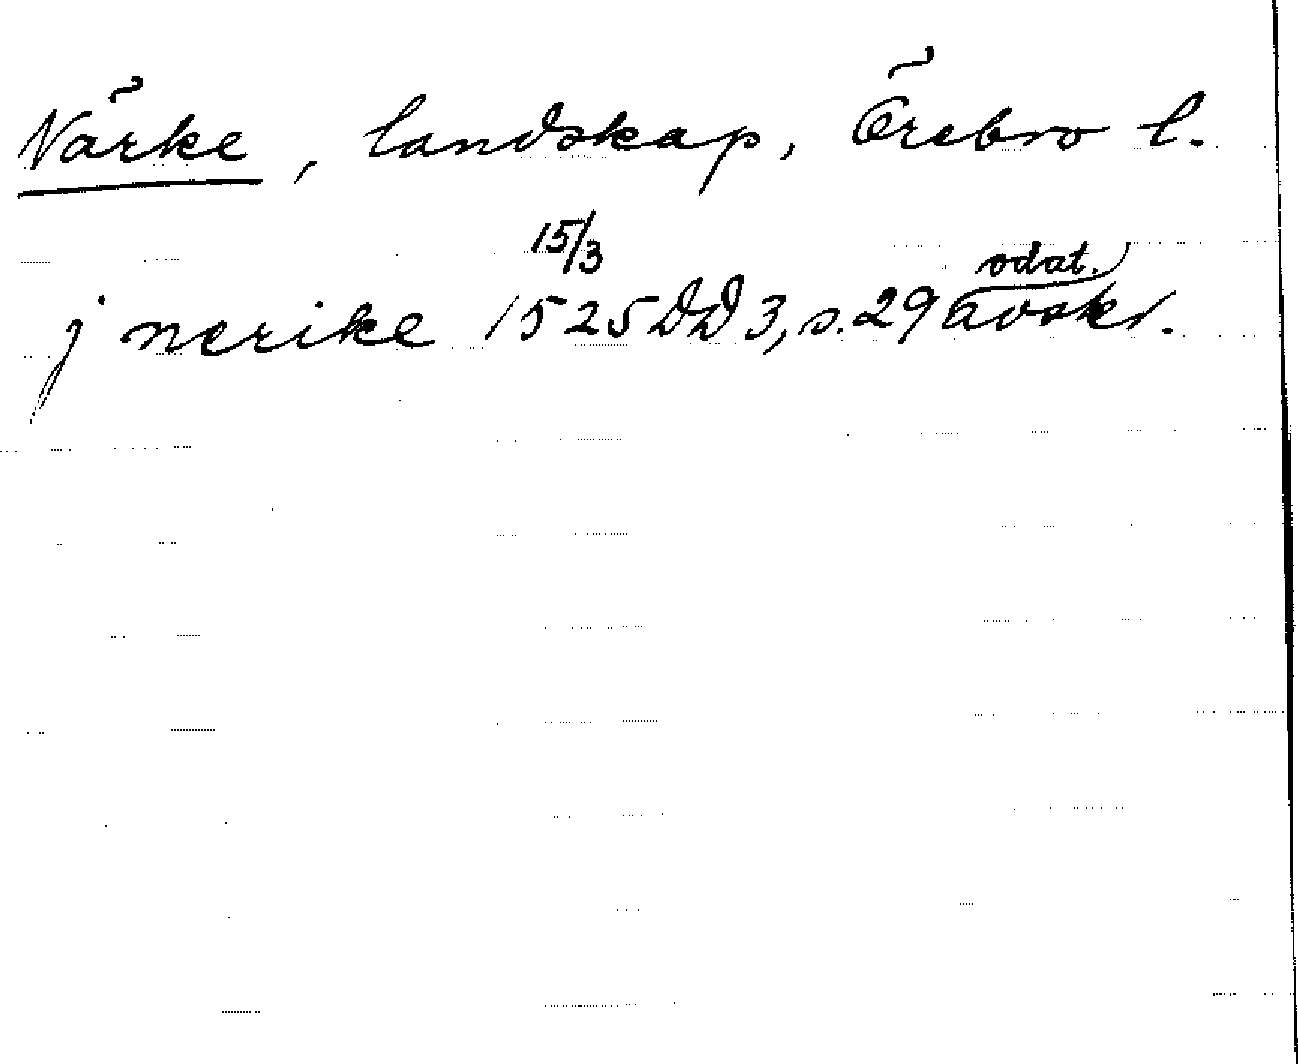 Närke, landskap, Örebro l.
15/3
j nerike 1525 DD 3, s. 29 avskr.
odat.